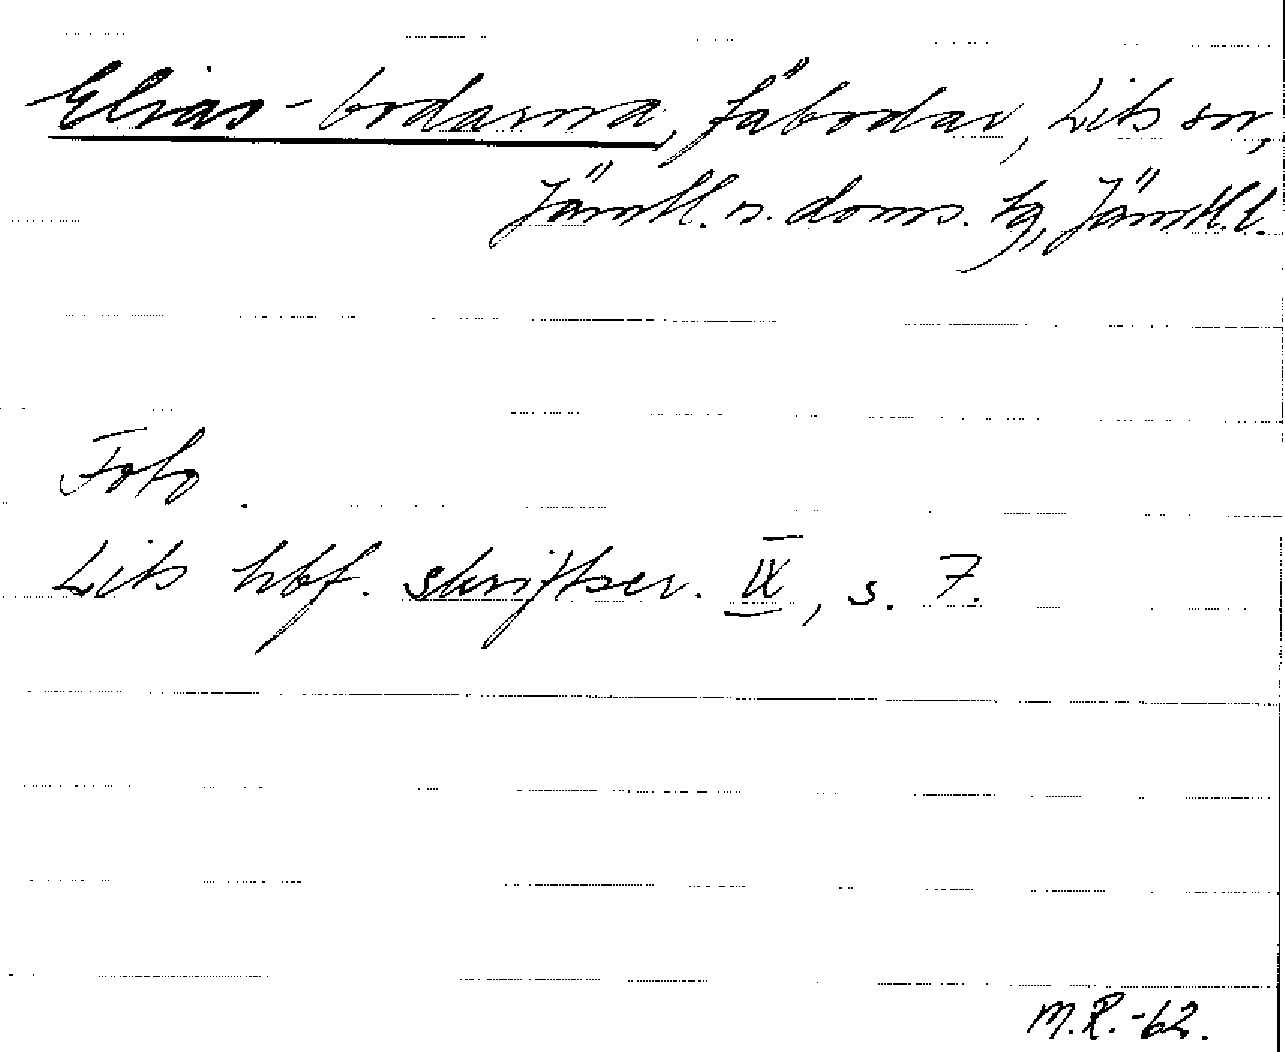 Elias-bodarna, fäbodar, Lits sn,
Jämtl. n. doms. tg, Jämtl. l.
Foto.
Lits hbf. skriftser. IX, s. 7.
M.R.-62.